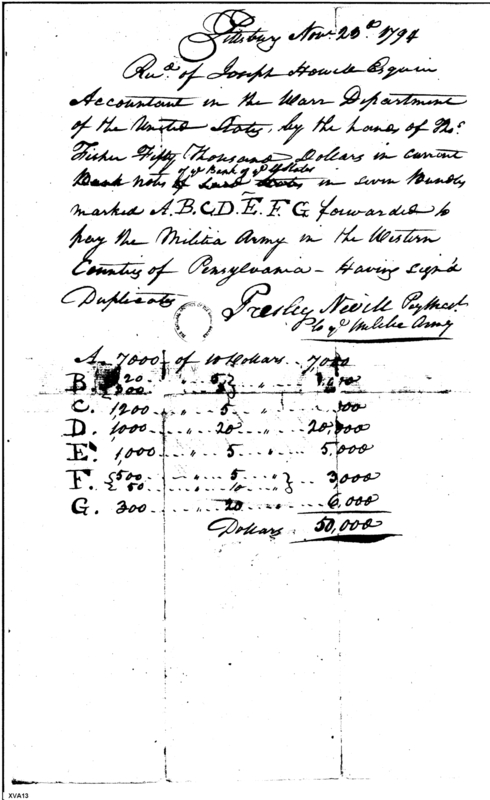 Pittsburg Nov.r 23.d 1794
Rec.d of Joseph Howell Esquire
Accountant in the Warr Department
of the United States, by the hands of Tho.s
Fisher Fifty Thousand Dollars in current
of ye Bank of ye U States
Bank notes in seven Bundles
marked A. B. C. D. E. F. G forwarded to
pay the Militia Army in the Western
Counties of Pensylvania - Having sign'd
Duplicates
Presley Nevill PayMast.
to ye Militia Army
A. 7000 of 10 Dollars 7,0
B.
C. 1,200 " 5 " 00
D. 1,000 " 20 " 20,000
E. 1,000 " 5 " 5,000
F. {500 " 5 " } 3,000
{50 " " }
G. 300 " 20 " 6,000
Dollars 50,000
XVA13